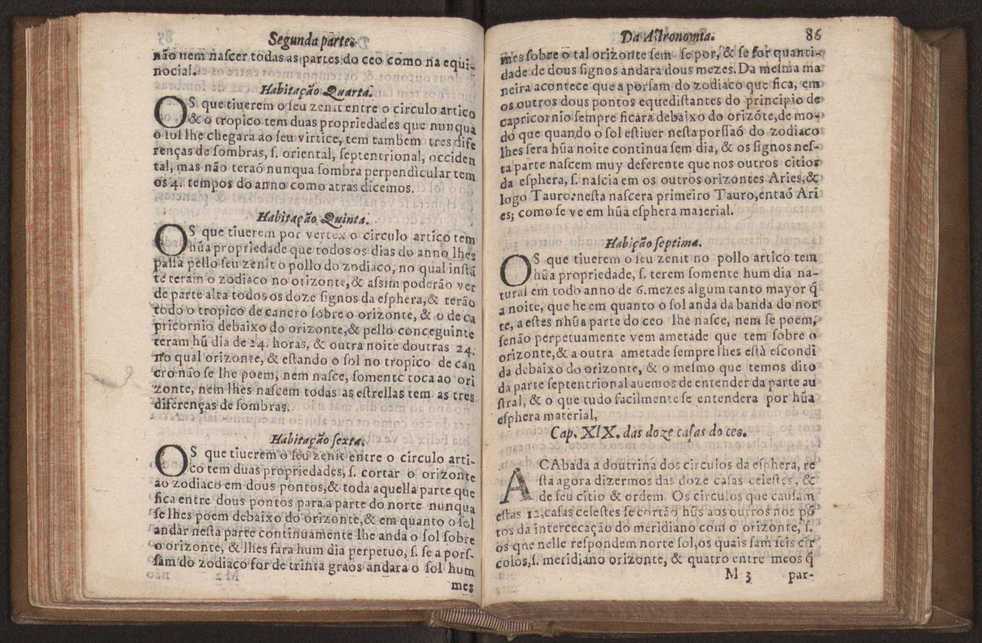 Segunda parte.
não nem nascer todas as partes do ceo como na equi-
nocial.
Habitação Quarta.
OS que tiuerem o seu zenit entre o circulo artico
& o tropico tem duas propriedades que nunqua
o sol lhe chegara ao seu virtice, tem tambem tres dife
renças de sombras, s. oriental, septentrional, occiden
tal, mas não teraõ nunqua sombra perpendicular tem
os 4. tempos do anno como atras dicemos.
Habitação Quinta.
OS que tiuerem por vertex o circulo artico tem
hũa propriedade que todos os dias do anno lhes
passa pello seu zenit o pollo do zodiaco, no qual instã
te teram o zodiaco no orizonte, & assim poderão ver
de parte alta todos os doze signos da esphera, & terão
todo o tropico de cancro sobre o orizonte, & o de ca
pricornio debaixo do orizonte, & pello conceguinte
teram hũ dia de 24. horas, & outra noite doutras 24.
no qual orizonte, & estando o sol no tropico de can
cro não se lhe poem, nem nasce, somente toca ao ori
zonte, nem lhes nascem todas as estrellas tem as tres
diferenças de sombras.
Habitação sexta.
OS que tiuerem o seu zenit entre o circulo arti-
co tem duas propriedades, s. cortar o orizonte
ao zodiaco em dous pontos, & toda aquella parte que
fica entre dous pontos para a parte do norte nunqua
se lhes poem debaixo do orizonte, & em quanto o sol
andar nesta parte continuamente lhe anda o sol sobre
o orizonte, & lhes fara hum dia perpetuo, s. se a pors-
sam do zodiaco for de trinta graos andara o sol hum
mes
Da Astronomia. 86
mes sobre o tal orizonte sem se por, & se for quanti-
dade de dous signos andara dous mezes. Da mesma ma
neira acontece que a porsam do zodiaco que fica, em
os outros dous pontos equedistantes do principio de
capricornio sempre ficará debaixo do orizõte, de mo-
do que quando o sol estiuer nesta porssaõ do zodiaco
lhes sera hũa noite continua sem dia, & os signos nes-
ta parte nascem muy deferente que nos outros citios
da esphera, s. nascia em os outros orizontes Aries, &
logo Tauro: nesta nascera primeiro Tauro, entaõ Ari
es; como se ve em hũa esphera material.
Habição septima.
OS que tiuerem o seu zenit no pollo artico tem
hũa propriedade, s. terem somente hum dia na-
tural em todo anno de 6. mezes algum tanto mayor q̃
a noite, que he em quanto o sol anda da banda do nor
te, a estes nhũa parte do ceo lhe nasce, nem se poem,
senão perpetuamente vem ametade que tem sobre o
orizonte, & a outra ametade sempre lhes està escondi
da debaixo do orizonte, & o mesmo que temos dito
da parte septentrional auemos de entender da parte au
stral, & o que tudo facilmente se entendera por hũa
esphera material.
Cap. XIX. das doze casas do ceo.
ACAbada a doutrina dos circulos da esphera, re
sta agora dizermos das doze casas celestes, &
de seu citio & ordem. Os circulos que causam
estas 12. casas celestes se cortão hũs aos outros nos põ
tos da intercecação do meridiano com o orizonte, s.
os que nelle respondem norte sol, os quais sam seis cir
colos, s. meridiano orizonte, & quatro entre meos q̃
M 3 par-